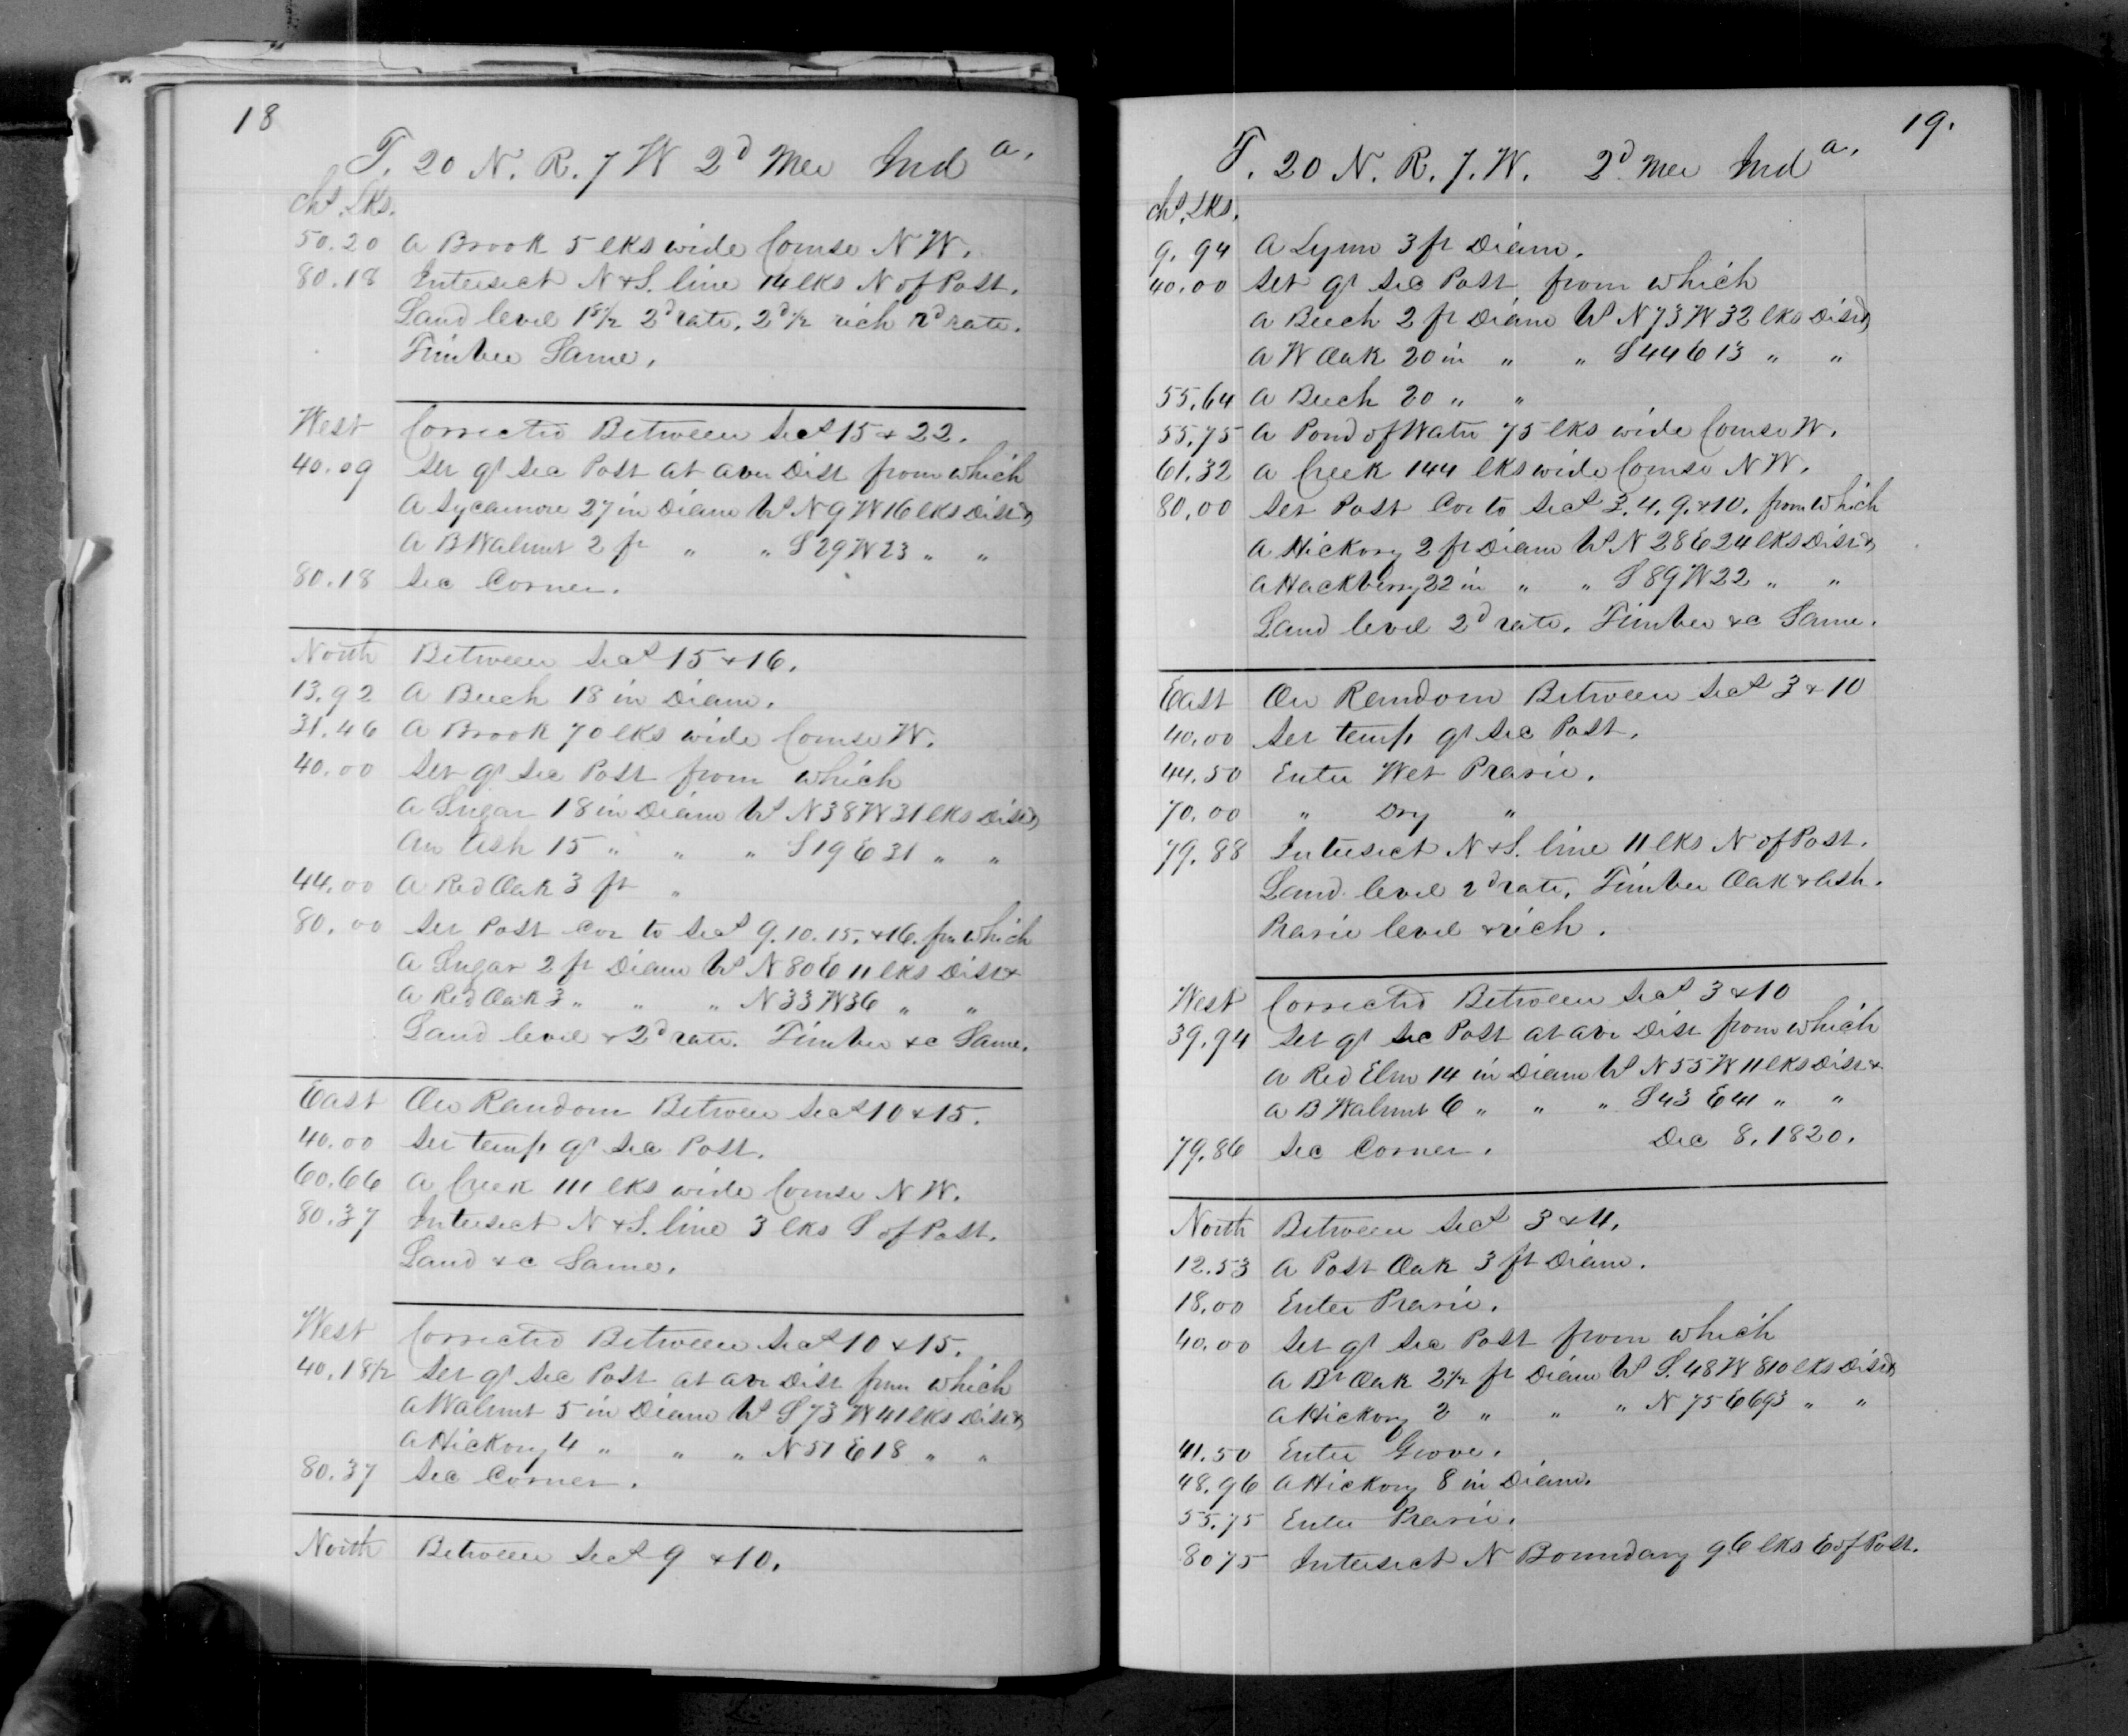 18
T. 20 N. R. 7 W 2d Mer Ind a.
chs. Lks.
50.20 A Brook 5 lks wide Course N W.
80.18 Intersect N & S. line 14 lks N of Post.
Land level 1st 1/2 2d rate. 2d 1/2 rich 2d rate.
Timber Same.
West Corrected Between Secs 15 & 22.
40.09 Set qr Sec Post at aver Dist from which
A Sycamore 27 in Diam bs N 9 W 16 lks Dist &
A B Walnut 2 ft " " S 29 W 23 " "
80.18 Sec Corner.
North Between Secs 15 & 16.
13.92 A Beech 18 in Diam.
31.46 A Brook 70 lks wide Course W.
40.00 Set qr Sec Post from which
A Sugar 18 in Diam bs N 38 W 31 lks Dist &
An Ash 15 " " " S 19 E 31 " "
44.00 A Red Oak 3 ft "
80.00 Set Post Cor to Secs 9. 10. 15. & 16. fm which
A Sugar 2 ft Diam bs N 80 E 11 lks Dist &
A Red Oak 3 " " " N 33 W 36 " "
Land level & 2d rate. Timber &c Same.
East On Random Between Secs 10 & 15.
40.00 Set temp qr Sec Post.
60.66 A Creek 111 lks wide Course N W.
80.37 Intersect N & S. line 3 lks S of Post.
Land &c Same.
West Corrected Between Secs 10 & 15.
40.18 1/2 Set qr Sec Post at aver Dist from which
A Walnut 5 in Diam bs S 73 W 41 lks Dist &
A Hickory 4 " " " N 51 E 18 " "
80.37 Sec Corner.
North Between Secs 9 & 10.
19.
T. 20 N. R. 7. W. 2d Mer Ind a.
chs. Lks.
9.94 A Lynn 3 ft Diam.
40.00 Set qr Sec Post from which
A Beech 2 ft Diam bs N 73 W 32 lks Dist &
A W Oak 20 in " " S 44 E 13 " "
55.64 A Beech 20 " "
55.75 A Pond of Water 75 lks wide Course W.
61.32 A Creek 144 lks wide Course N W.
80.00 Set Post Cor to Secs 3. 4. 9. & 10. from which
A Hickory 2 ft Diam bs N 28 E 24 lks Dist &
A Hackberry 22 in " " S 89 W 22 " "
Land level 2d rate. Timber &c Same.
East On Random Between Secs 3 & 10
40.00 Set temp qr Sec Post.
44.50 Enter Wet Prarie.
70.00 " Dry "
79.88 Intersect N & S. line 11 lks N of Post.
Land level 2d rate. Timber Oak & Ash.
Prarie level & rich.
West Corrected Between Secs 3 & 10
39.94 Set qr Sec Post at aver Dist from which
A Red Elm 14 in Diam bs N 55 W 11 lks Dist &
A B Walnut 6 " " " S 43 E 41 " "
79.86 Sec Corner. Dec 8. 1820.
North Between Secs 3 & 4.
12.53 A Post Oak 3 ft Diam.
18.00 Enter Prarie.
40.00 Set qr Sec Post from which
A Br Oak 2 1/2 ft Diam bs S. 48 W 810 lks Dist &
A Hickory 2 " " " N 75 E 693 " "
41.50 Enter Grove.
48.96 A Hickory 8 in Diam.
55.75 Enter Prarie.
80 75 Intersect N Boundary 96 lks E of Post.